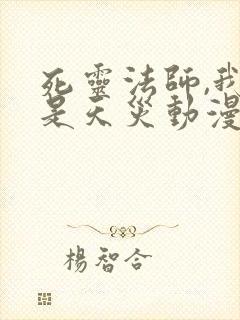 死靈法師,我
是天災動漫
楊智合